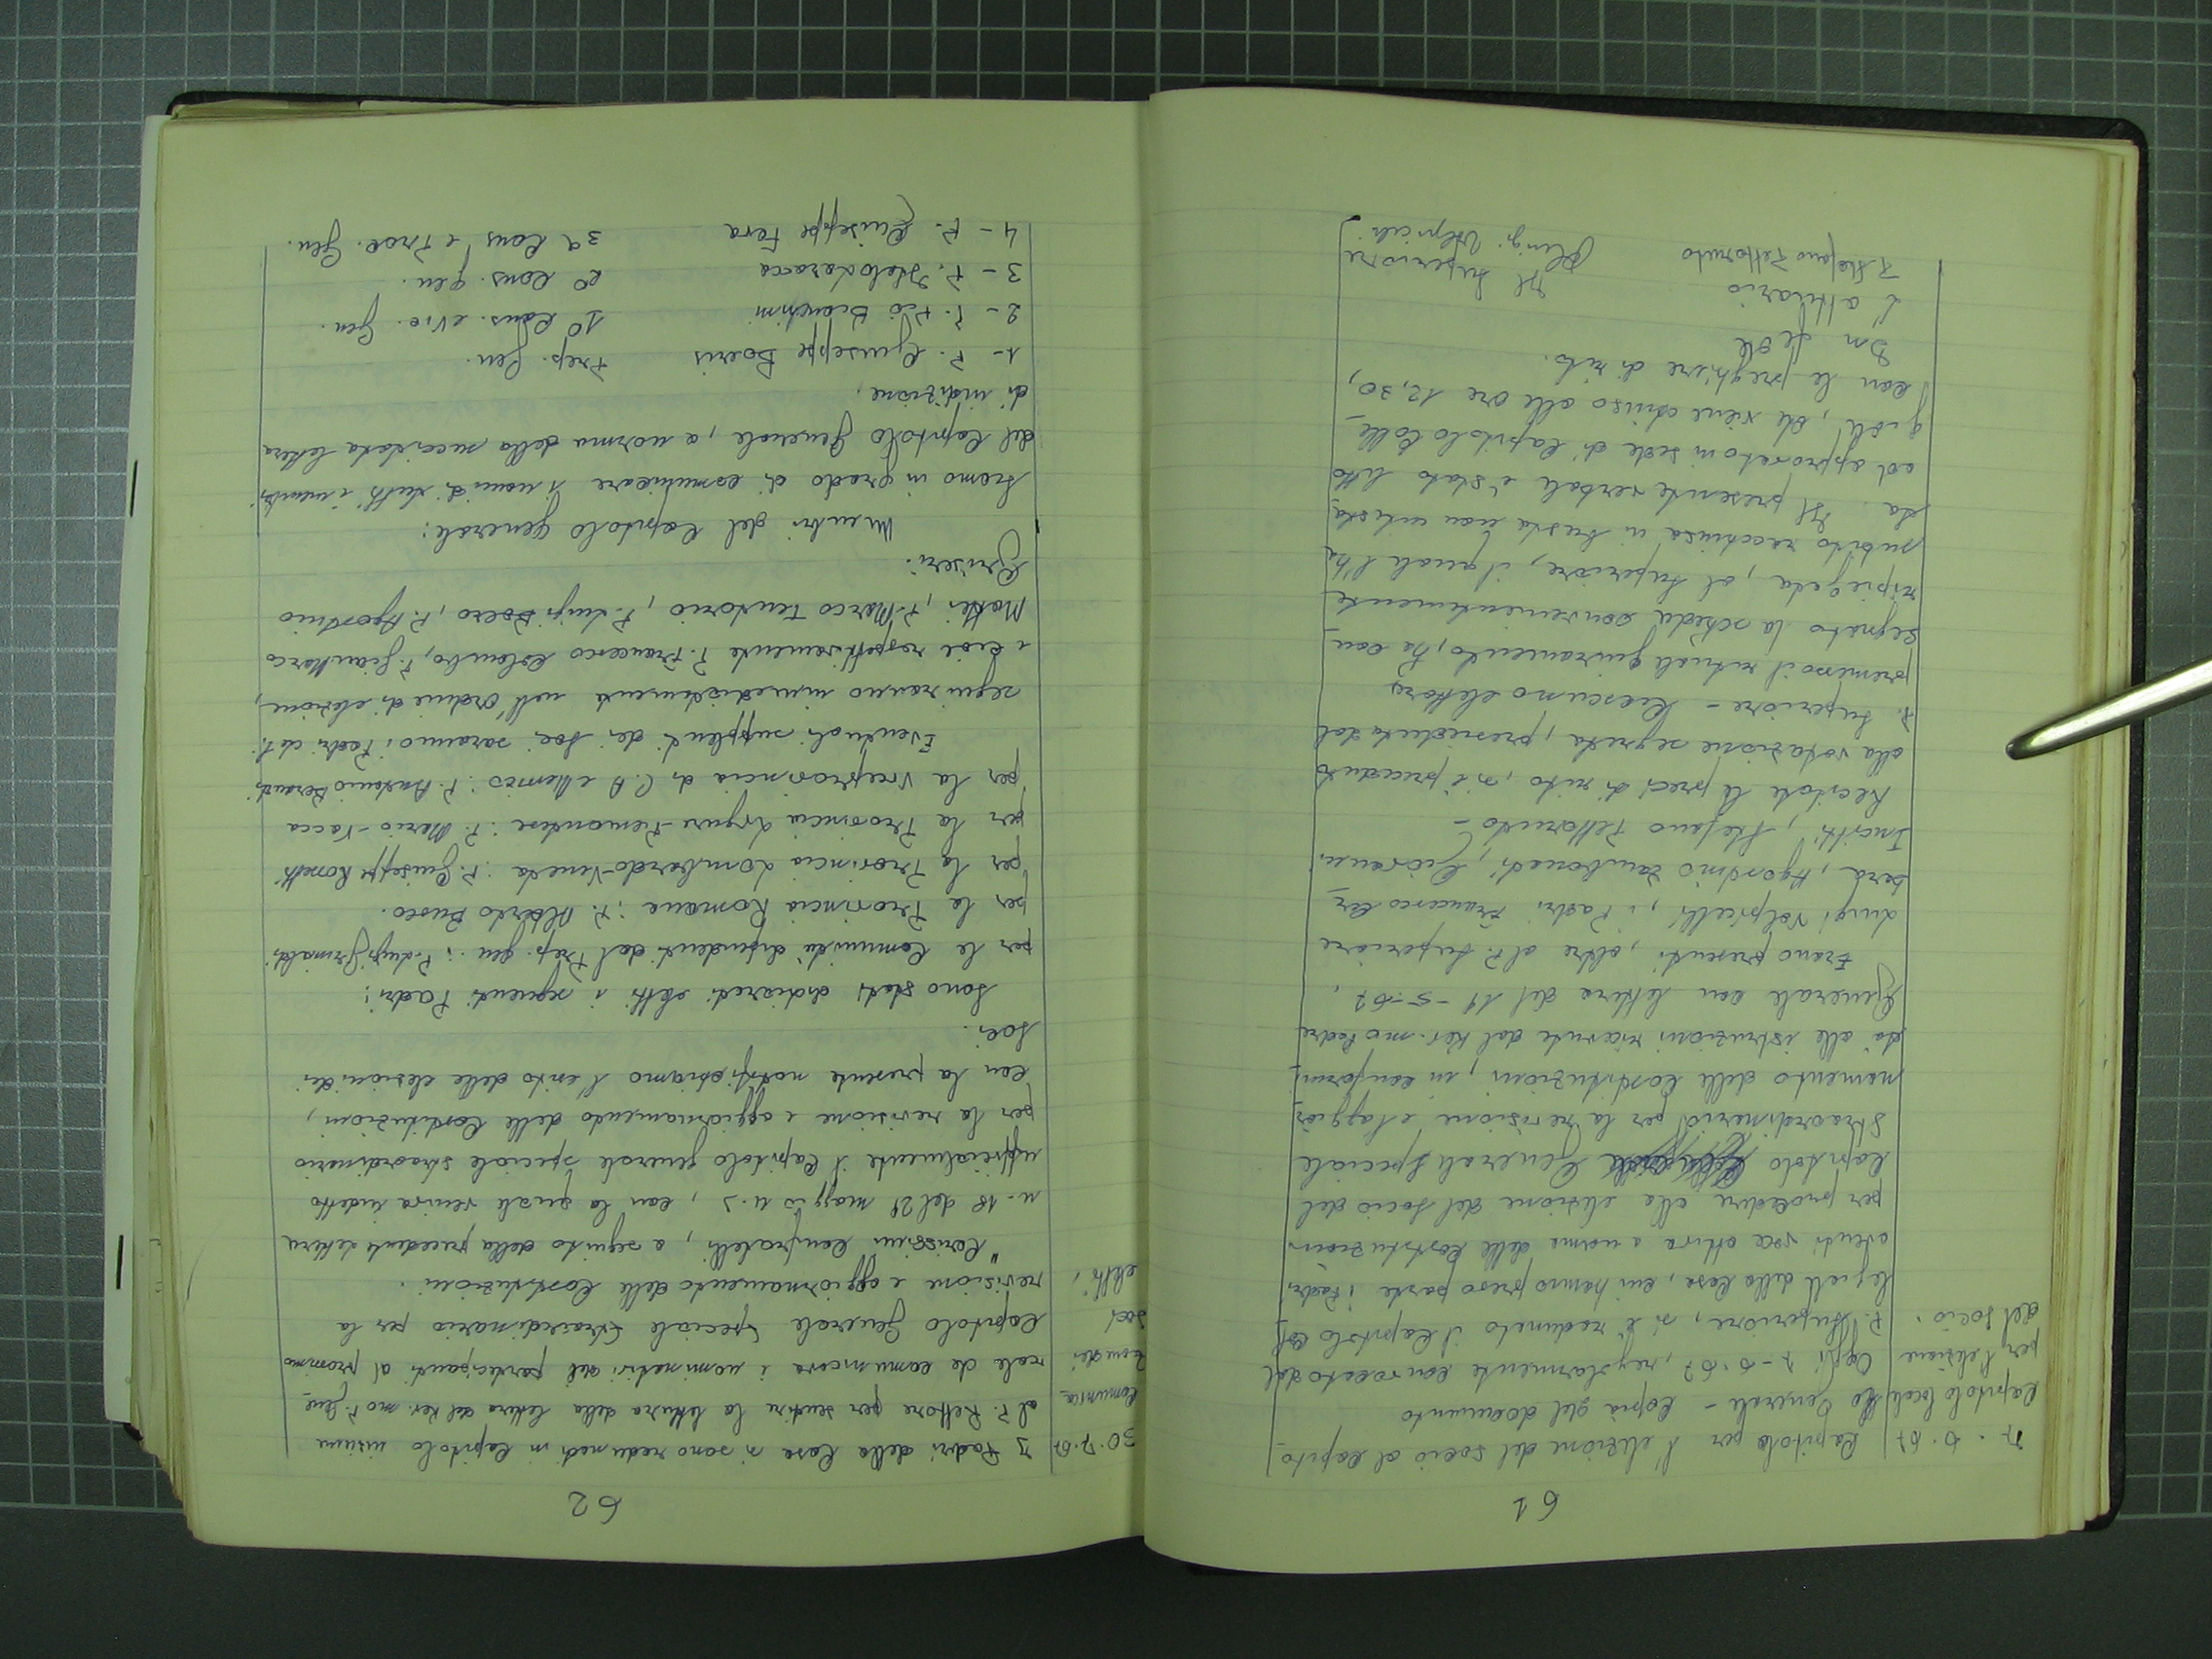 61
7. 6. 67
Capitolo locale
per l'elezione
del socio.
Capitolo per l'elezione del socio al Capito-
lo Generale - Copia del documento
Oggi 7-6-67, regolarmente convocato dal
P. Superiore, si è radunato il Capitolo Col
legiale della Casa, cui hanno preso parte i Padri
aventi voce attiva a norma delle Costituzioni
per procedere alla elezione del Socio del
Capitolo Generale Speciale
Straordinario per la revisione e l'aggior
namento delle Costituzioni, in conformi
tà alle istruzioni ricevute dal Rev.mo Padre
Generale con lettera del 11-5-67.
Erano presenti, oltre al P. Superiore
Luigi Volpicelli, i Padri Francesco Cer
bara, Agostino Zambonati, Giovanni
Stefano Pettoruto -
Recitate le preci di rito, si è proceduto
alla votazione segreta, presieduta dal
P. Superiore - Ciascuno elettore
premesso il rituale giuramento, ha con
segnato la scheda convenientemente
ripiegata, al Superiore, il quale l'ha
subito racchiusa in busta non intesta
ta. Il presente verbale è stato letto
ed approvato in sede di Capitolo Colle-
giale, che viene chiuso alle ore 12,30,
con le preghiere di rito.
In fede
L'attuario
P. Stefano Pettoruto
Il Superiore
P. Luigi Volpicelli
62
30.7.67
Comunica_
zione dei
soci
eletti,
I Padri della Casa si sono radunati in Capitolo insieme
al P. Rettore per sentire la lettura della lettera del Rev.mo P. Gene_
rale che comunicava i nominativi dei partecipanti al prossimo
Capitolo Generale Speciale Straordinario per la
revisione e aggiornamento delle Costituzioni.
"Carissimi Confratelli, a seguito della precedente lettera
n. 18 del 21 maggio u.s, con la quale veniva indetto
ufficialmente il Capitolo generale speciale straordinario
per la revisione e aggiornamento delle Costituzioni,
con la presente notifichiamo l'esito delle elezioni dei
Soci.
Sono stati dichiarati eletti i seguenti Padri:
per le Comunità dipendenti dal Prep. gen. : P. Luigi Grimaldi
per la Provincia Romana : P. Alberto Busco.
per la Provincia Lombardo-Veneta : P. Giuseppe Rossetti
per la Provincia Ligure-Piemontese : P. Mario Vacca
per la Viceprovincia di C.A e Messico : P. Antonio Beraudi
Eventuali supplenti dei Soci saranno i Padri che
seguiranno immediatamente nell'ordine di elezione,
e cioè rispettivamente P. Francesco Colombo, P. Gian Marco
Mattei, P. Marco Tentorio, P. Luigi Bacco, P. Agostino
Griseri.
Membri del Capitolo generale:
Siamo in grado di comunicare i nomi di tutti i membri
del Capitolo Generale, a norma della succitata lettera
di indizione.
1 - P. Giuseppe Boeris Prep. Gen.
2 - P. Pio Bianchini 1º Cons. e Vic. Gen.
3 - P. Italo Laracca 2º Cons. gen.
4 - P. Giuseppe Fava 3º Cons e Proc. Gen.